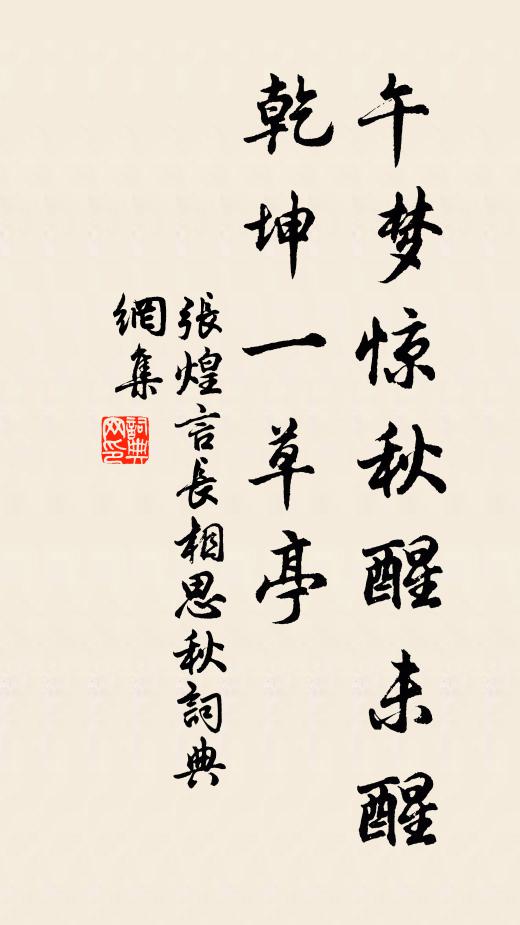 午梦惊秋醒未醒
乾坤一草亭
張煌言長相思秋詞典
網集
詞典
网印